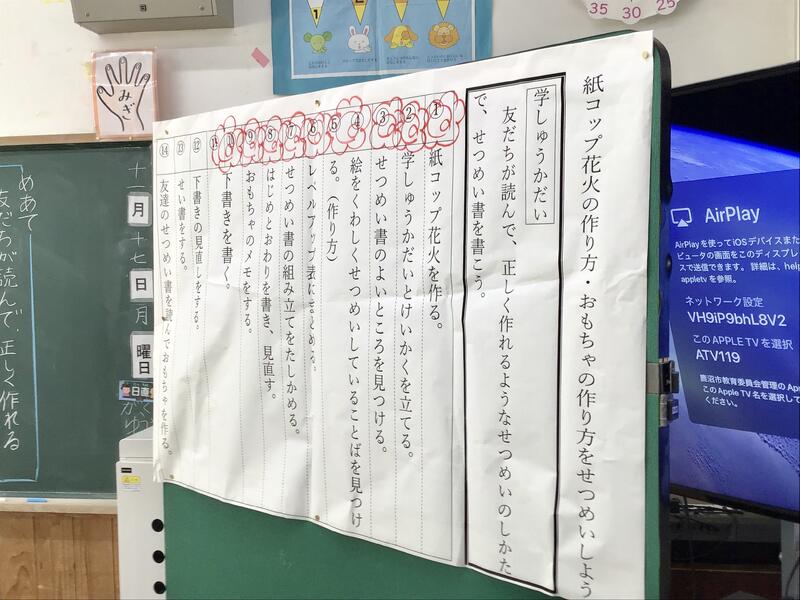 紙コップ花火の作り方・おもちゃの作り方をせつめいしよう
学しゅうかだい
友だちが読んで、正しく作れるようなせつめいのしかた
で、せつめい書を書こう。
①紙コップ花火を作る。
②学しゅうかだいとけいかくを立てる。
③せつめい書のよいところを見つける。
④絵をくわしくせつめいしていることばを見つけ
⑤る。(作り方)
⑥レベルアップ表にまとめる。
⑦せつめい書の組み立てをたしかめる。
⑧はじめとおわりを書き、見直す。
⑨おもちゃのメモをする。
下書きを書く。
⑫下書きの見直しをする。
⑬せい書をする。
⑭友達のせつめい書を読んでおもちゃを作る。
みぎ
めあて
友だちが読んで、正しく作れる
十一月
十七日
月曜日
日直
35
30
25
1
AirPlay
AirPlay を使って iOS デバイスまた
ピュータの画面をこのディスプレ
スで送信できます。詳細は、help
appletv を参照。
ネットワーク設定
VH9iP9bhL8V2
この APPLE TV を選択
ATV119
鹿沼市教育委員会管理の Ap
この Apple TV 名を選択して
ください。